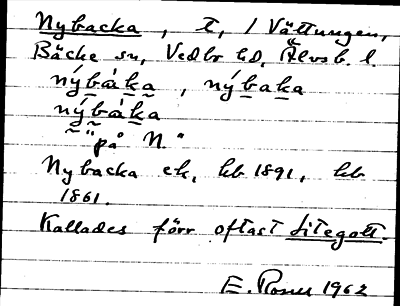 Nybacka, t, 1 Vättungen,
Bäcke sn, Vedbo hd, Älvsb. l.
nýbàka, nýbaka
nýbàka
"på N."
Nybacka ek, kb 1891, kb
1861.
Kallades förr oftast Litegott.
E. Rosur 1962